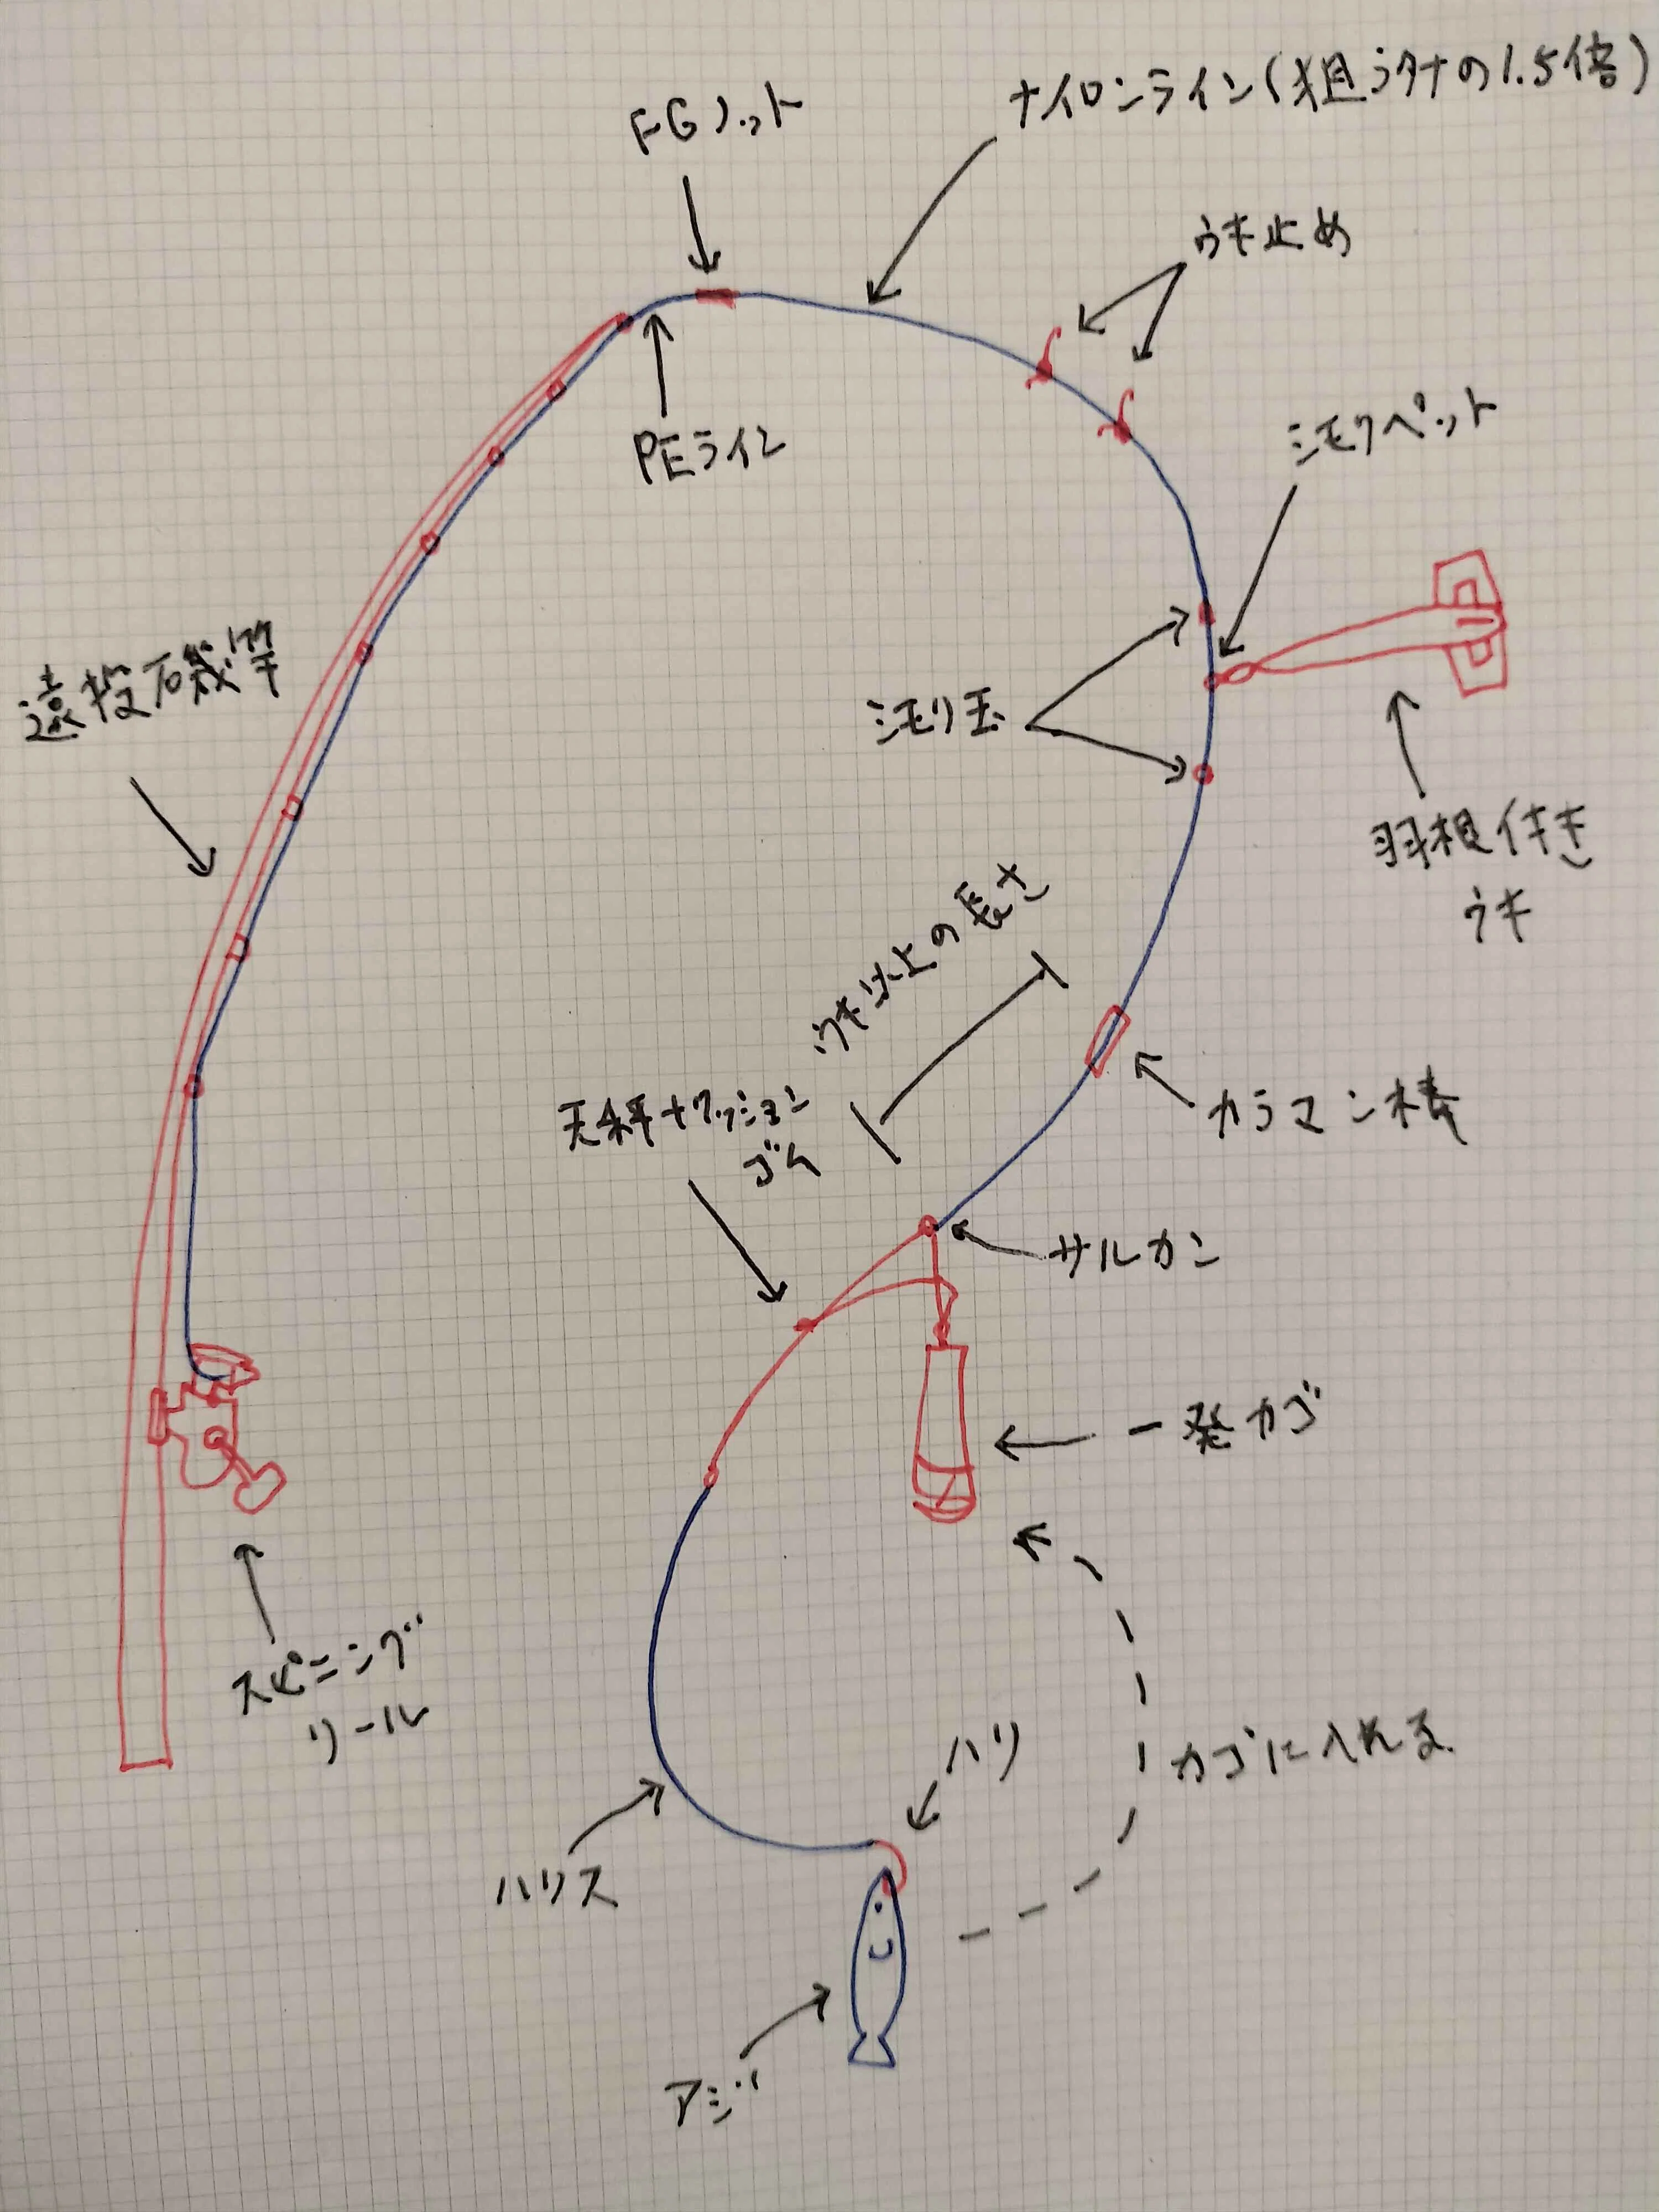 FGノット
ナイロンライン(狙うタナの1.5倍)
ウキ止め
PEライン
シモリペット
遠投磯竿
シモリ玉
羽根付き
ウキ
ウキ以上の長さ
カラマン棒
天秤+クッション
ゴム
サルカン
一発カゴ
スピニング
リール
カゴに入れる
ハリ
ハリス
アジ